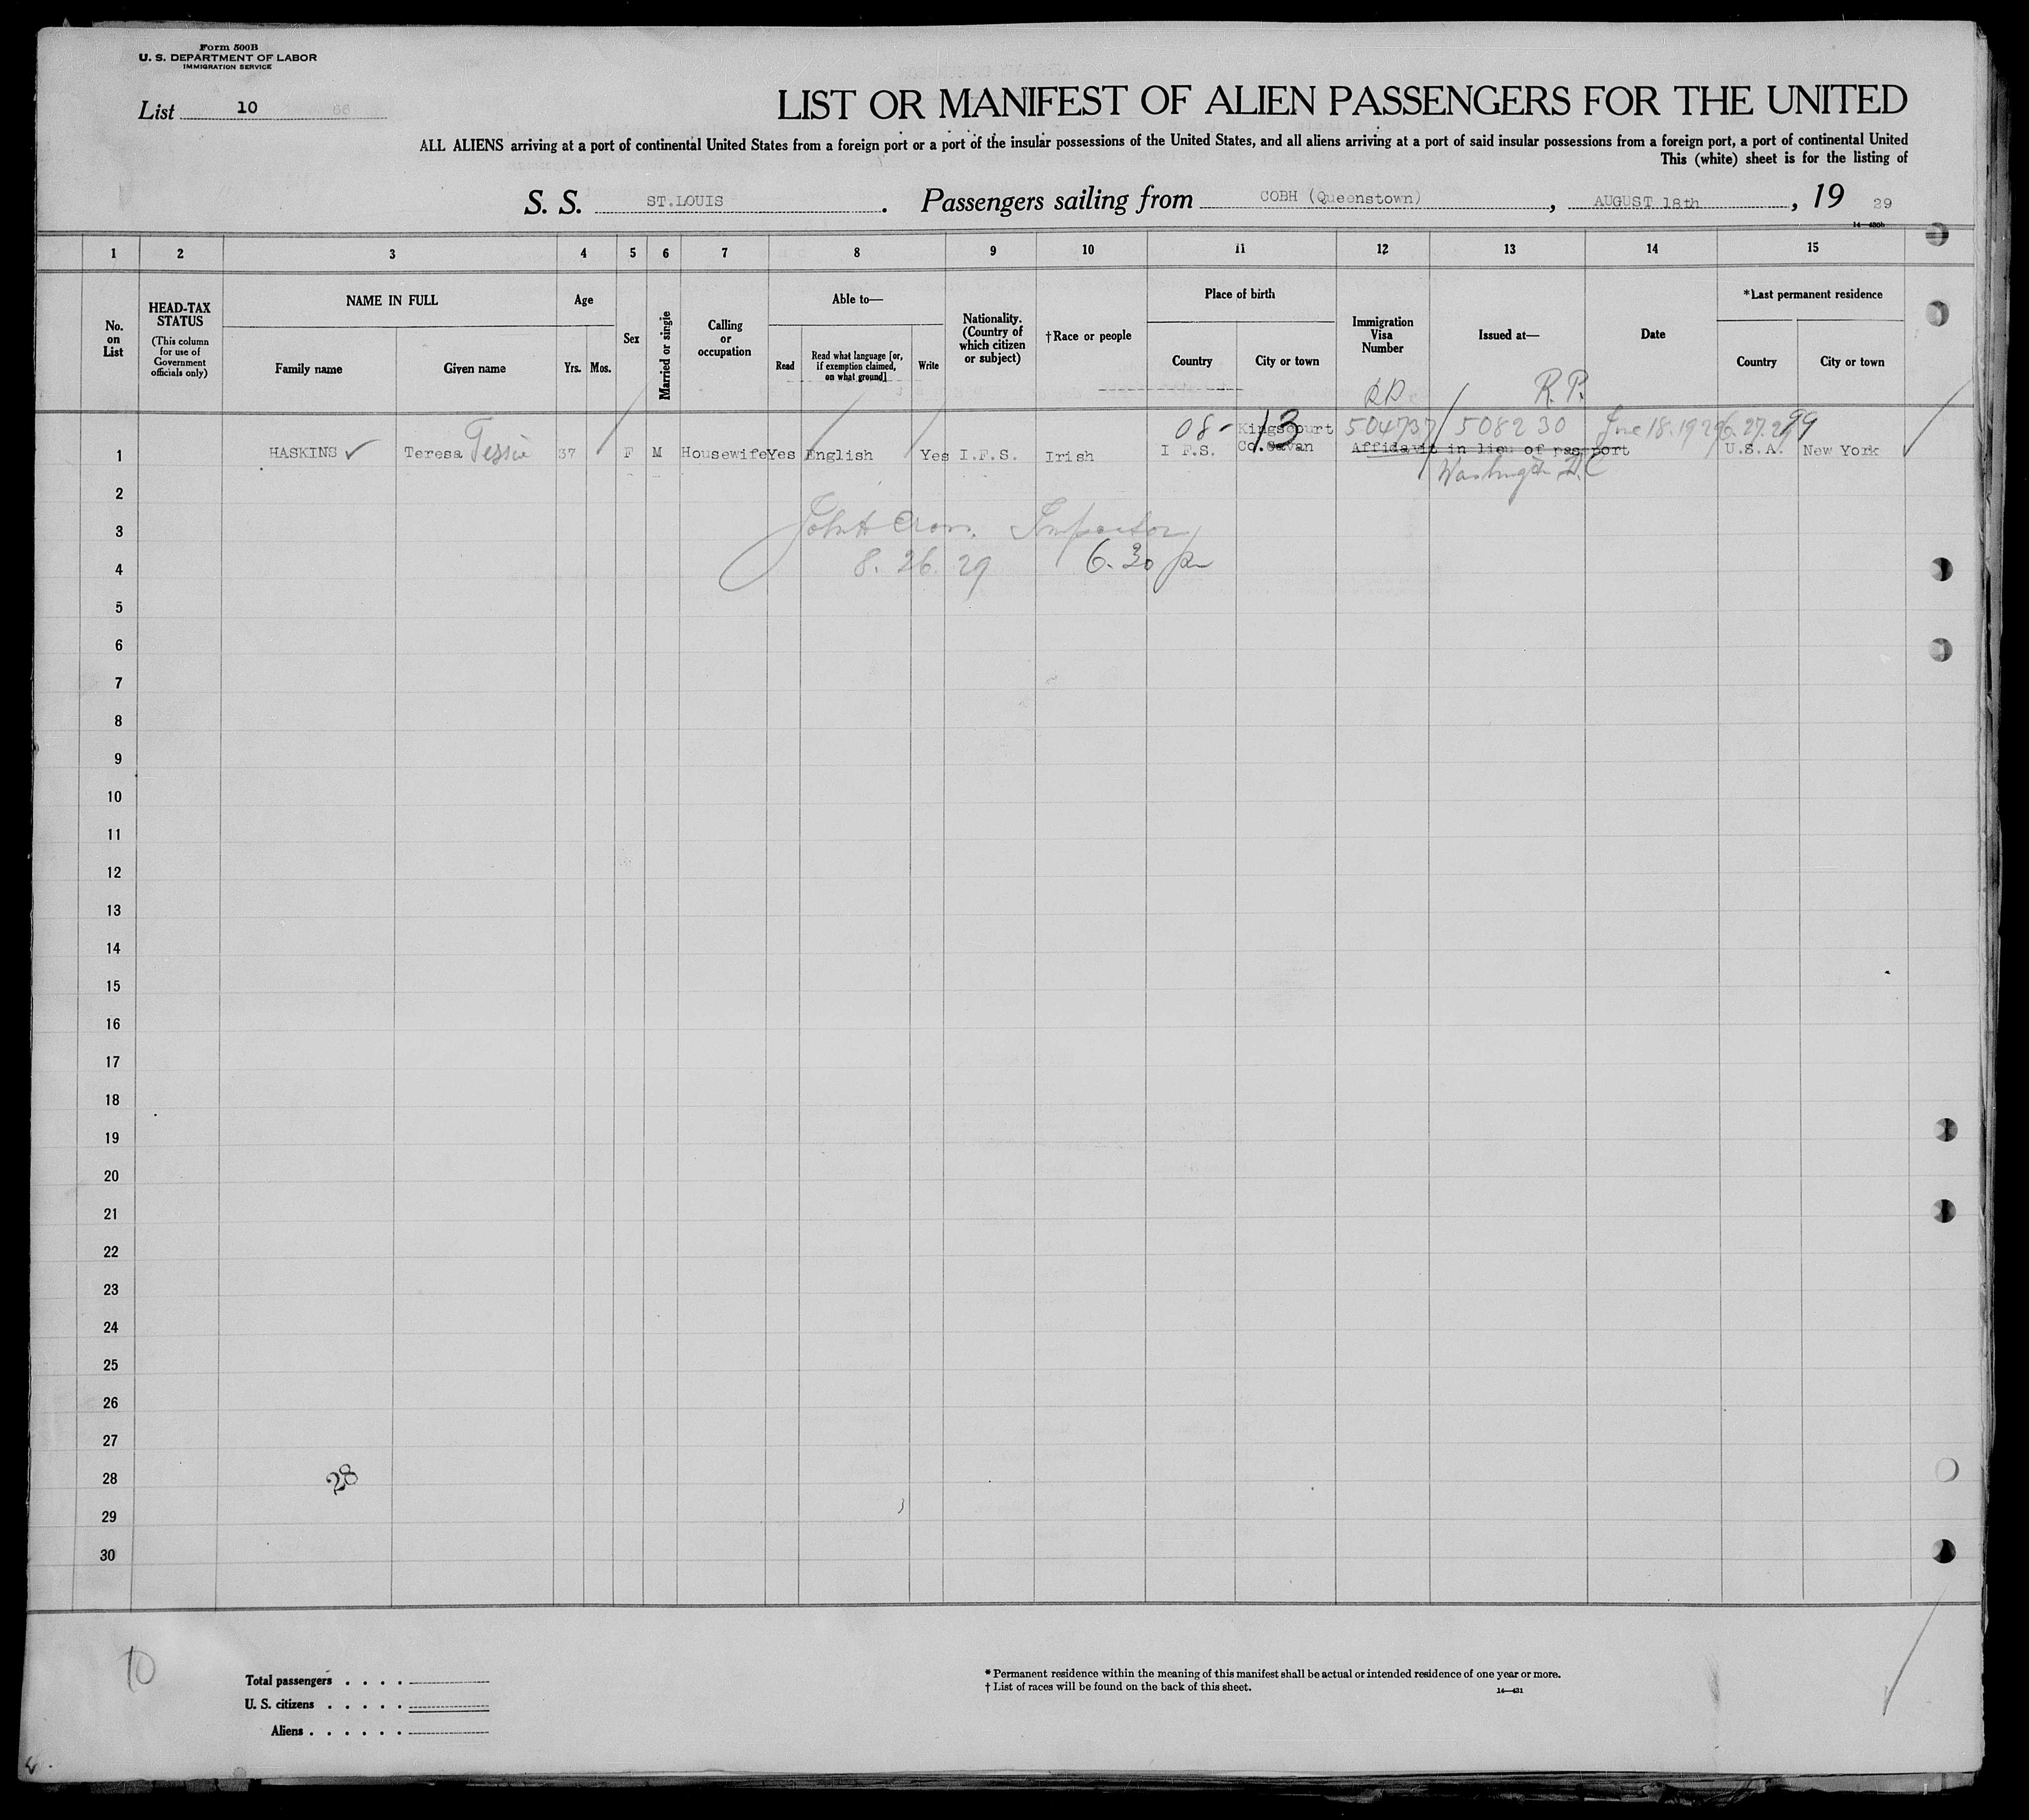 Form 500B
U. S. DEPARTMENT OF LABOR
IMMIGRATION SERVICE
List 10 66
LIST OR MANIFEST OF ALIEN PASSENGERS FOR THE UNITED
ALL ALIENS arriving at a port of continental United States from a foreign port or a port of the insular possessions of the United States, and all aliens arriving at a port of said insular possessions from a foreign port, a port of continental United
This (white) sheet is for the listing of
S. S. ST.LOUIS. Passengers sailing from COBH (Queenstown), AUGUST 18th, 19 29
14—430b
1 2 3 4 5 6 7 8 9 10 11 12 13 14 15
No. on List
HEAD-TAX STATUS
(This column for use of Government officials only)
NAME IN FULL
Family name Given name
Age
Yrs. Mos.
Sex
Married or single
Calling or occupation
Able to—
Read Read what language [or, if exemption claimed, on what ground] Write
Nationality. (Country of which citizen or subject)
†Race or people
Place of birth
Country City or town
Immigration Visa Number
Issued at—
Date
*Last permanent residence
Country City or town
R.P.
08- 13 Kingscourt 504737 508230 June 18.1929 6.27.29 99
1 HASKINS ✓ Teresa Tessie 37 F M Housewife Yes English Yes I.F.S. Irish I F.S. Co.Cavan Affidavit in lieu of passport U.S.A. New York
Washington D.C
2
3 Inspector
4 8. 26. 29 6.30 pm
5
6
7
8
9
10
11
12
13
14
15
16
17
18
19
20
21
22
23
24
25
26
27
28 28
29
30
10
Total passengers . . . .
U. S. citizens . . . . .
Aliens . . . . . .
* Permanent residence within the meaning of this manifest shall be actual or intended residence of one year or more.
† List of races will be found on the back of this sheet.
14—431